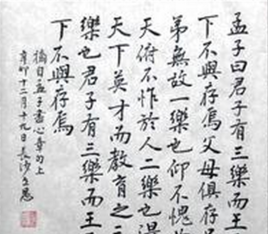 孟子曰君子有三樂而王
下不與存焉父母俱存
弟無故一樂也仰不愧
天俯不怍於人二樂也得
天下英才而教育之三
樂也君子有三樂而王
下不與存焉
摘自孟子盡心章句上
辛卯十二月十九日長沙